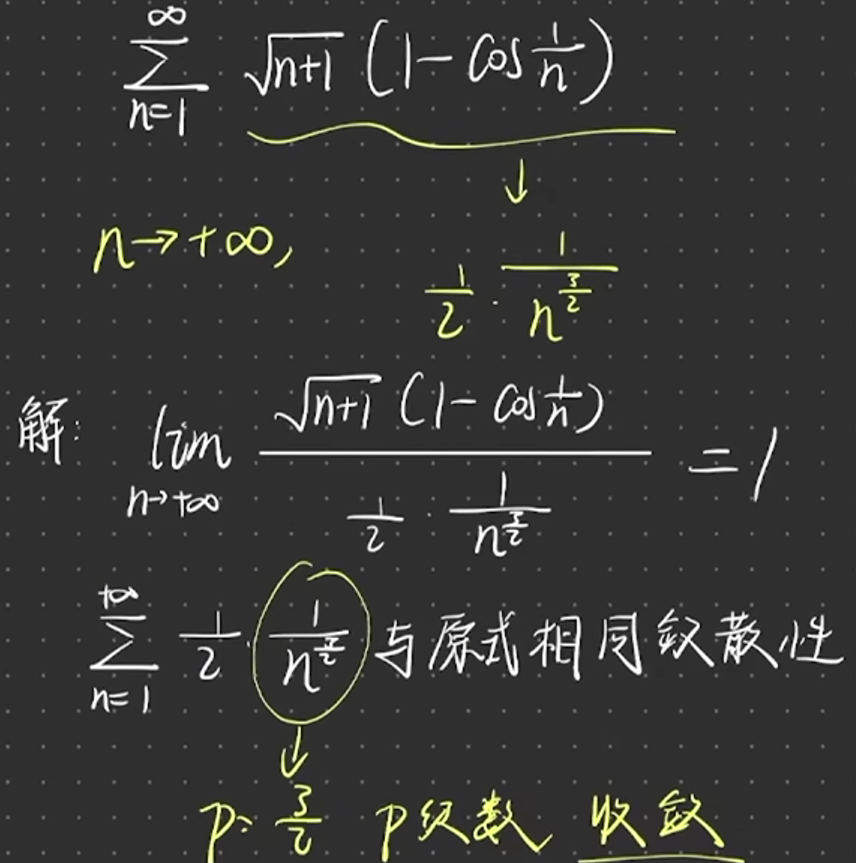 ∑_{n=1}^{∞} √(n+1) (1 - cos 1/n)
↓
n→+∞, 1/2 · 1/n^{3/2}
解: lim_{n→+∞} [√(n+1) (1 - cos 1/n)] / [1/2 · 1/n^{3/2}] = 1
∑_{n=1}^{+∞} 1/2 · 1/n^{3/2} 与原式相同敛散性
↓
P: 3/2 P级数 收敛